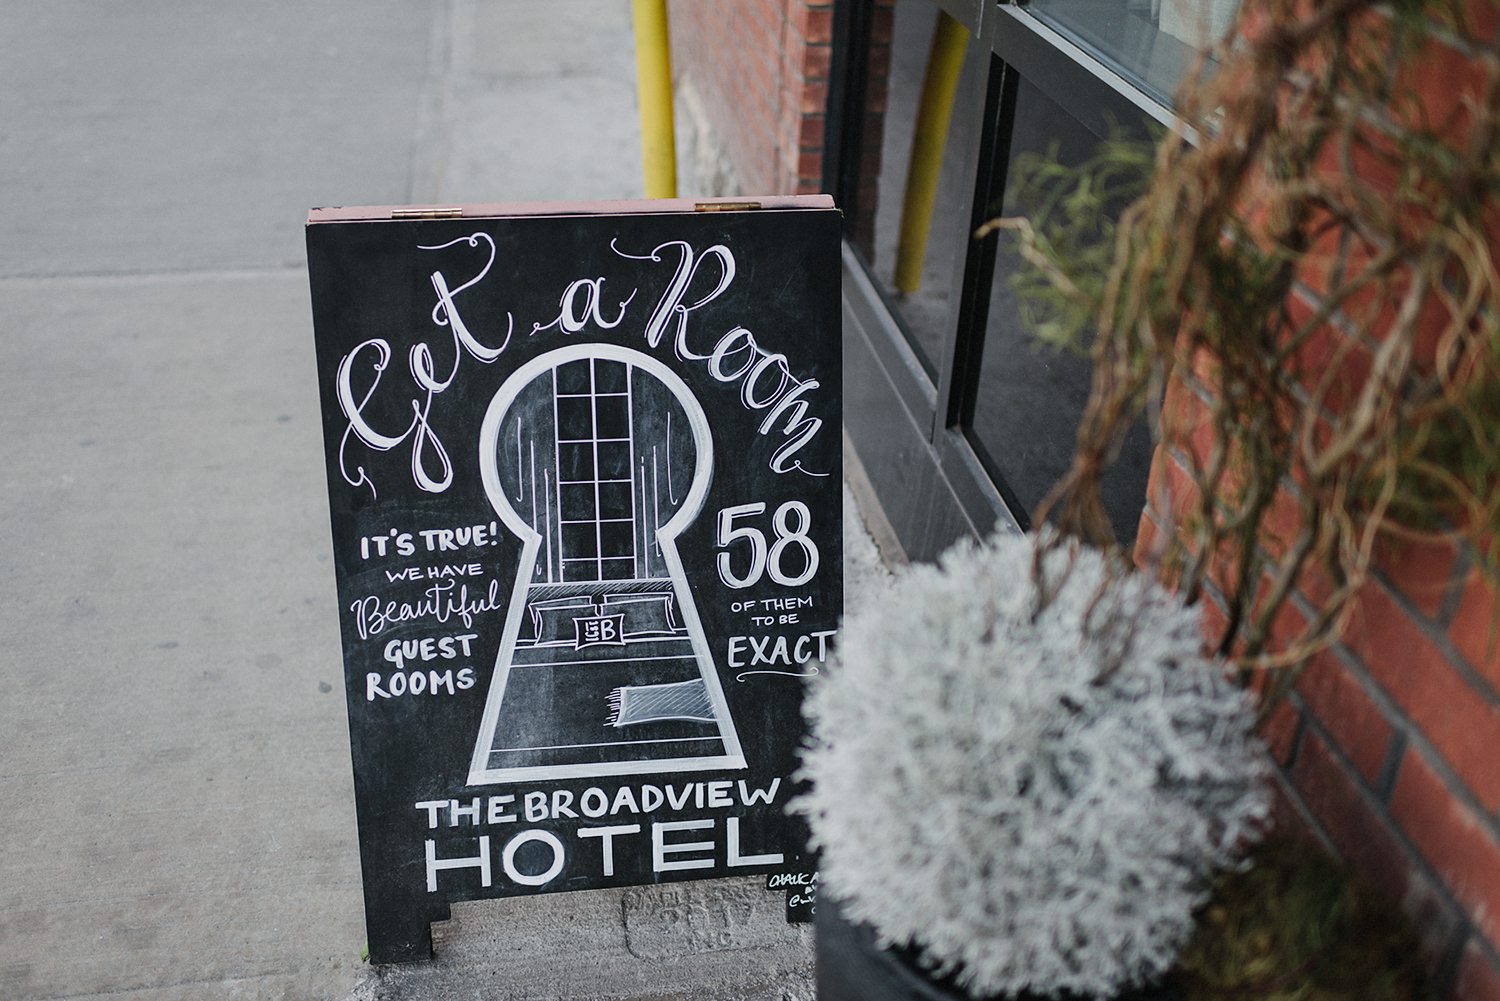 Get a Room
IT'S TRUE!
WE HAVE
Beautiful
GUEST
ROOMS
58
OF THEM
TO BE
EXACT
B
THE BROADVIEW
HOTEL
CHALK